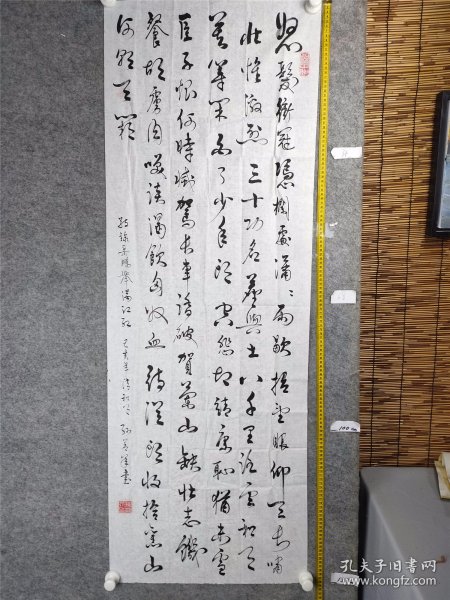 怒髮衝冠憑欄處瀟〻雨歇抬望眼仰天長嘯
壯懷激烈三十功名塵與土八千里路雲和月
莫等閑白了少年頭空悲切靖康恥猶未雪
臣子恨何時滅駕長車踏破賀蘭山缺壯志飢
餐胡虜肉笑談渴飲匈奴血待從頭收拾舊山
河朝天闕
錄岳鵬舉滿江紅 己亥年 書
100
孔夫子旧书网
www.kongfz.com